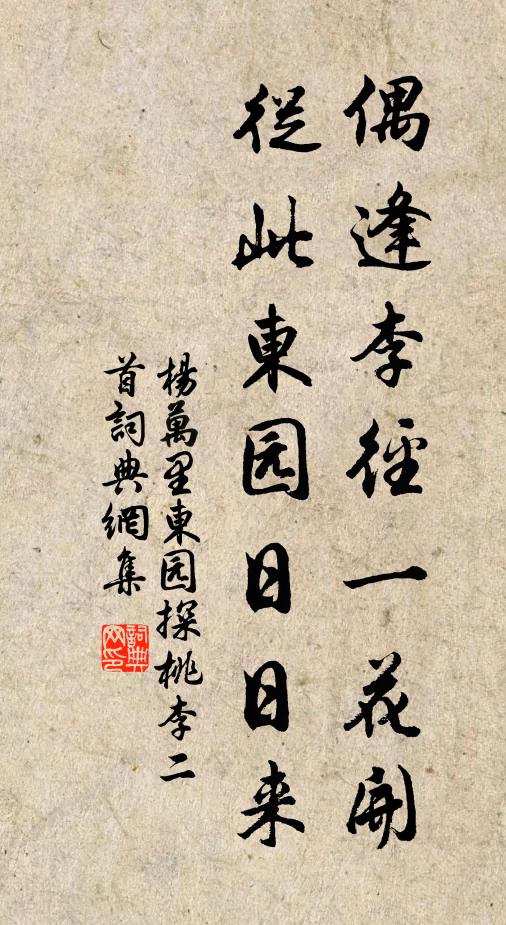 偶逢李径一花開
從此東园日日来
楊萬里東园探桃李二
首詞典網集
詞典
网印